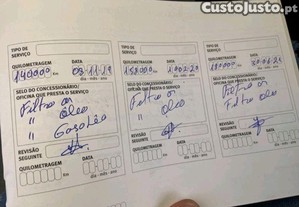 CustoJusto.pt
TIPO DE
SERVIÇO
QUILOMETRAGEM
DATA
140000 Km
dia - mês - ano
SELO DO CONCESSIONÁRIO/
OFICINA QUE PRESTA O SERVIÇO
Filtro ar
" Óleo
" Gasóleo
REVISÃO
SEGUINTE
DATA
QUILOMETRAGEM
Km
dia - mês - ano
TIPO DE
SERVIÇO
QUILOMETRAGEM
DATA
Km
dia - mês - ano
SELO DO CONCESSIONÁRIO/
OFICINA QUE PRESTA O SERVIÇO
Filtro ar
" Óleo
REVISÃO
SEGUINTE
DATA
QUILOMETRAGEM
Km
dia - mês - ano
TIPO DE
SERVIÇO
QUILOMETRAGEM
DATA
Km
dia - mês - ano
SELO DO CONCESSIONÁRIO/
OFICINA QUE PRESTA O SERVIÇO
Filtro ar
Filtro Óleo
REVISÃO
SEGUINTE
DATA
QUILOMETRAGEM
Km
dia - mês - ano